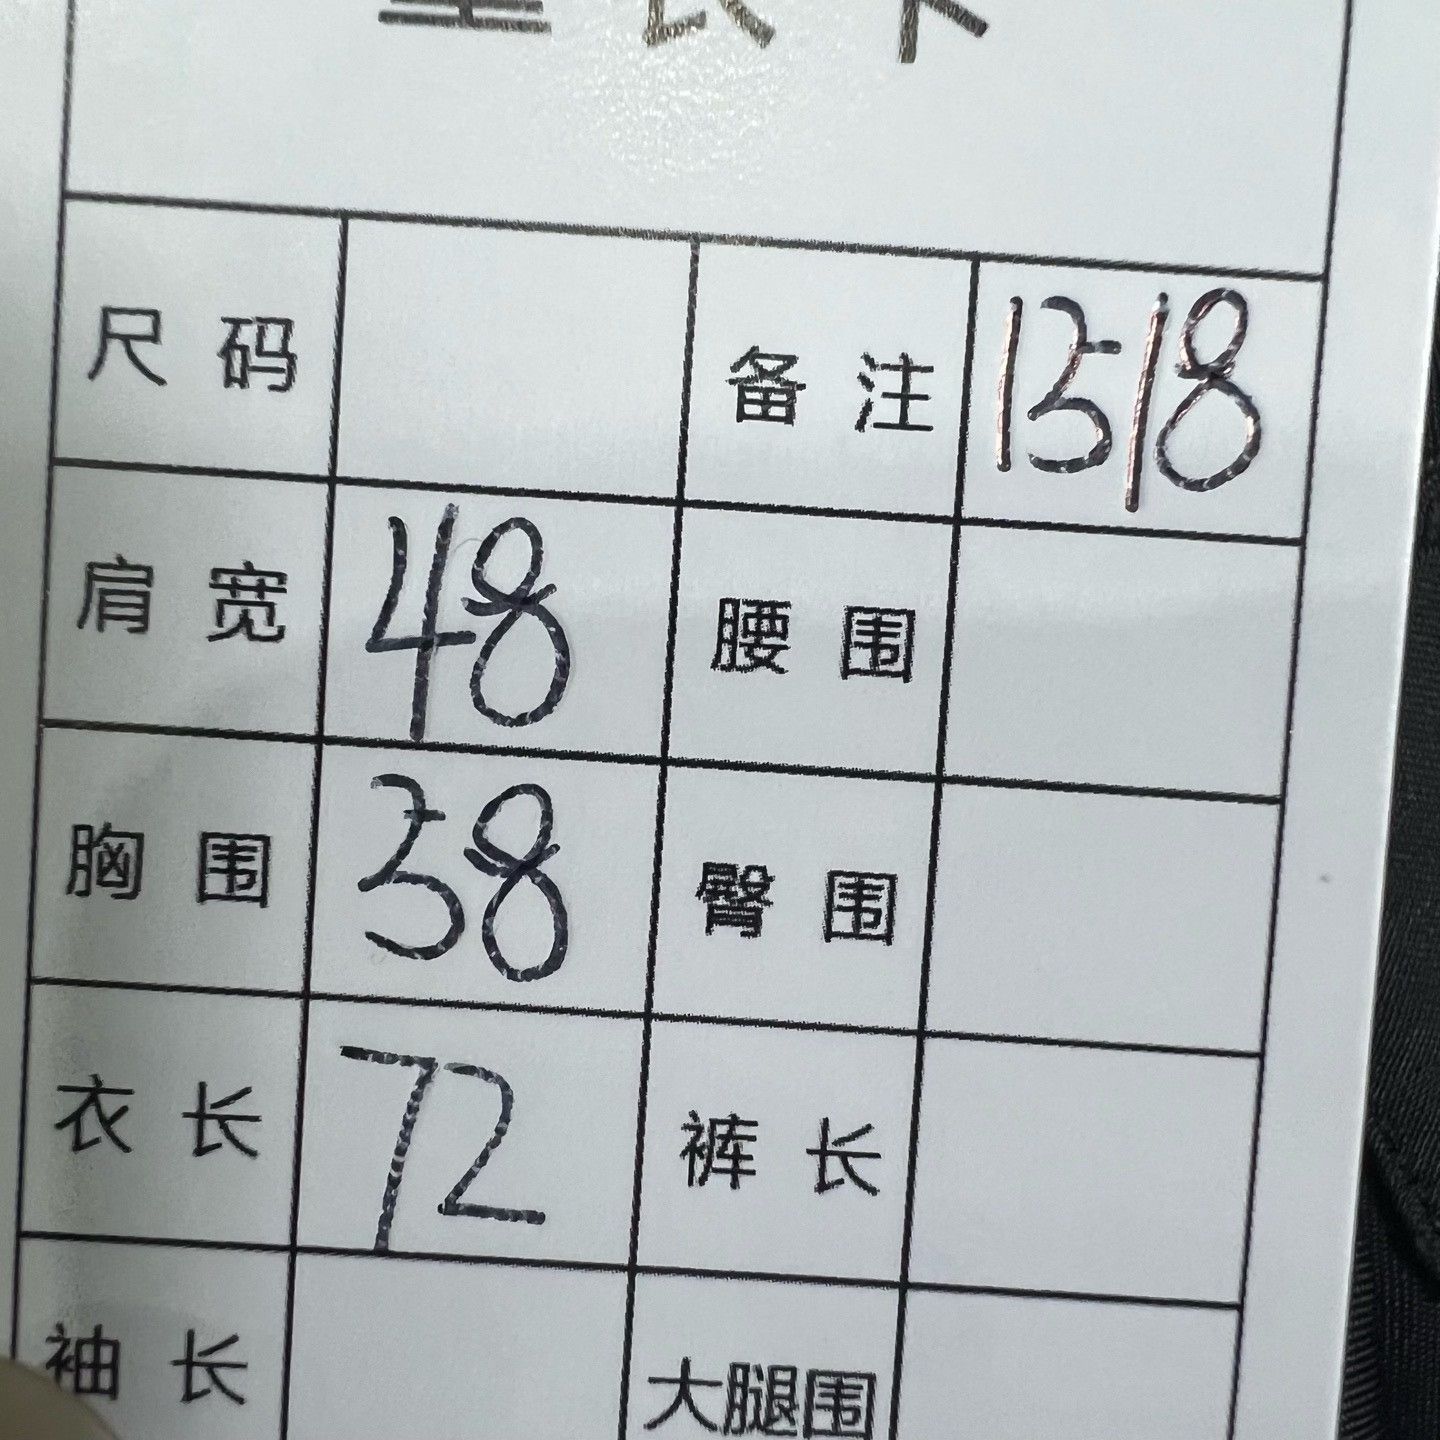 量衣卡
尺码 备注 1518
肩宽 48 腰围
胸围 58 臀围
衣长 72 裤长
袖长 大腿围